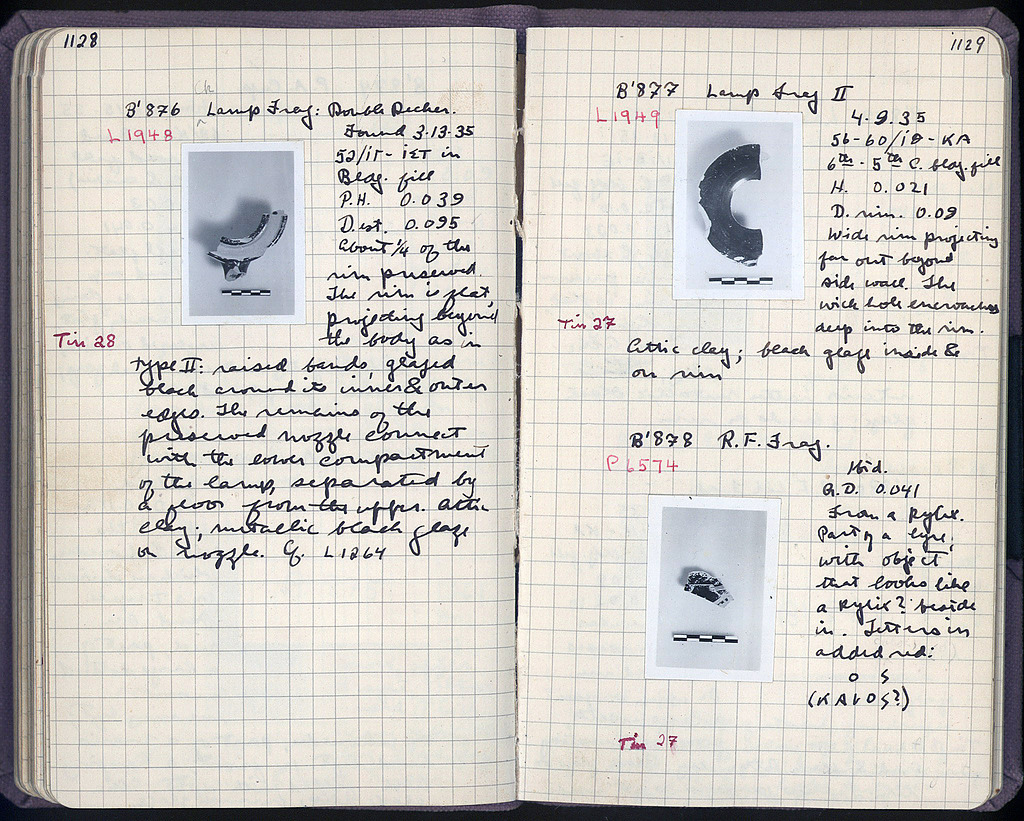 1128
ck
B'876 Lamp Frag: Double Decker.
L 1948
Found 3.13.35
52/ΙΓ - ΙΣΤ in
Bldg. fill
P.H. 0.039
D. est. 0.095
About 1/4 of the
rim preserved.
The rim is flat,
projecting beyond
Tin 28
the body as in
type II: raised bands, glazed
black around its inner & outer
edges. The remains of the
preserved nozzle connect
with the lower compartment
of the lamp, separated by
a floor from the upper. Attic
clay; metallic black glaze
on nozzle. Cf. L 1264
1129
B'877 Lamp Frag II
L 1949
4.9.35
56-60/ΙΘ - ΚΑ
6th - 5th C. bldg. fill
H. 0.021
D. rim. 0.09
Wide rim projecting
far out beyond
side wall. The
wick hole encroaches
Tin 27
deep into the rim.
Attic clay; black glaze inside &
on rim
B'878 R.F. Frag.
P 6574
Ibid.
G.D. 0.041
From a kylix.
Part of a lyre,
with object
that looks like
a kylix? beside
in. Letters in
added red:
O S
(KALOS?)
Tin 27